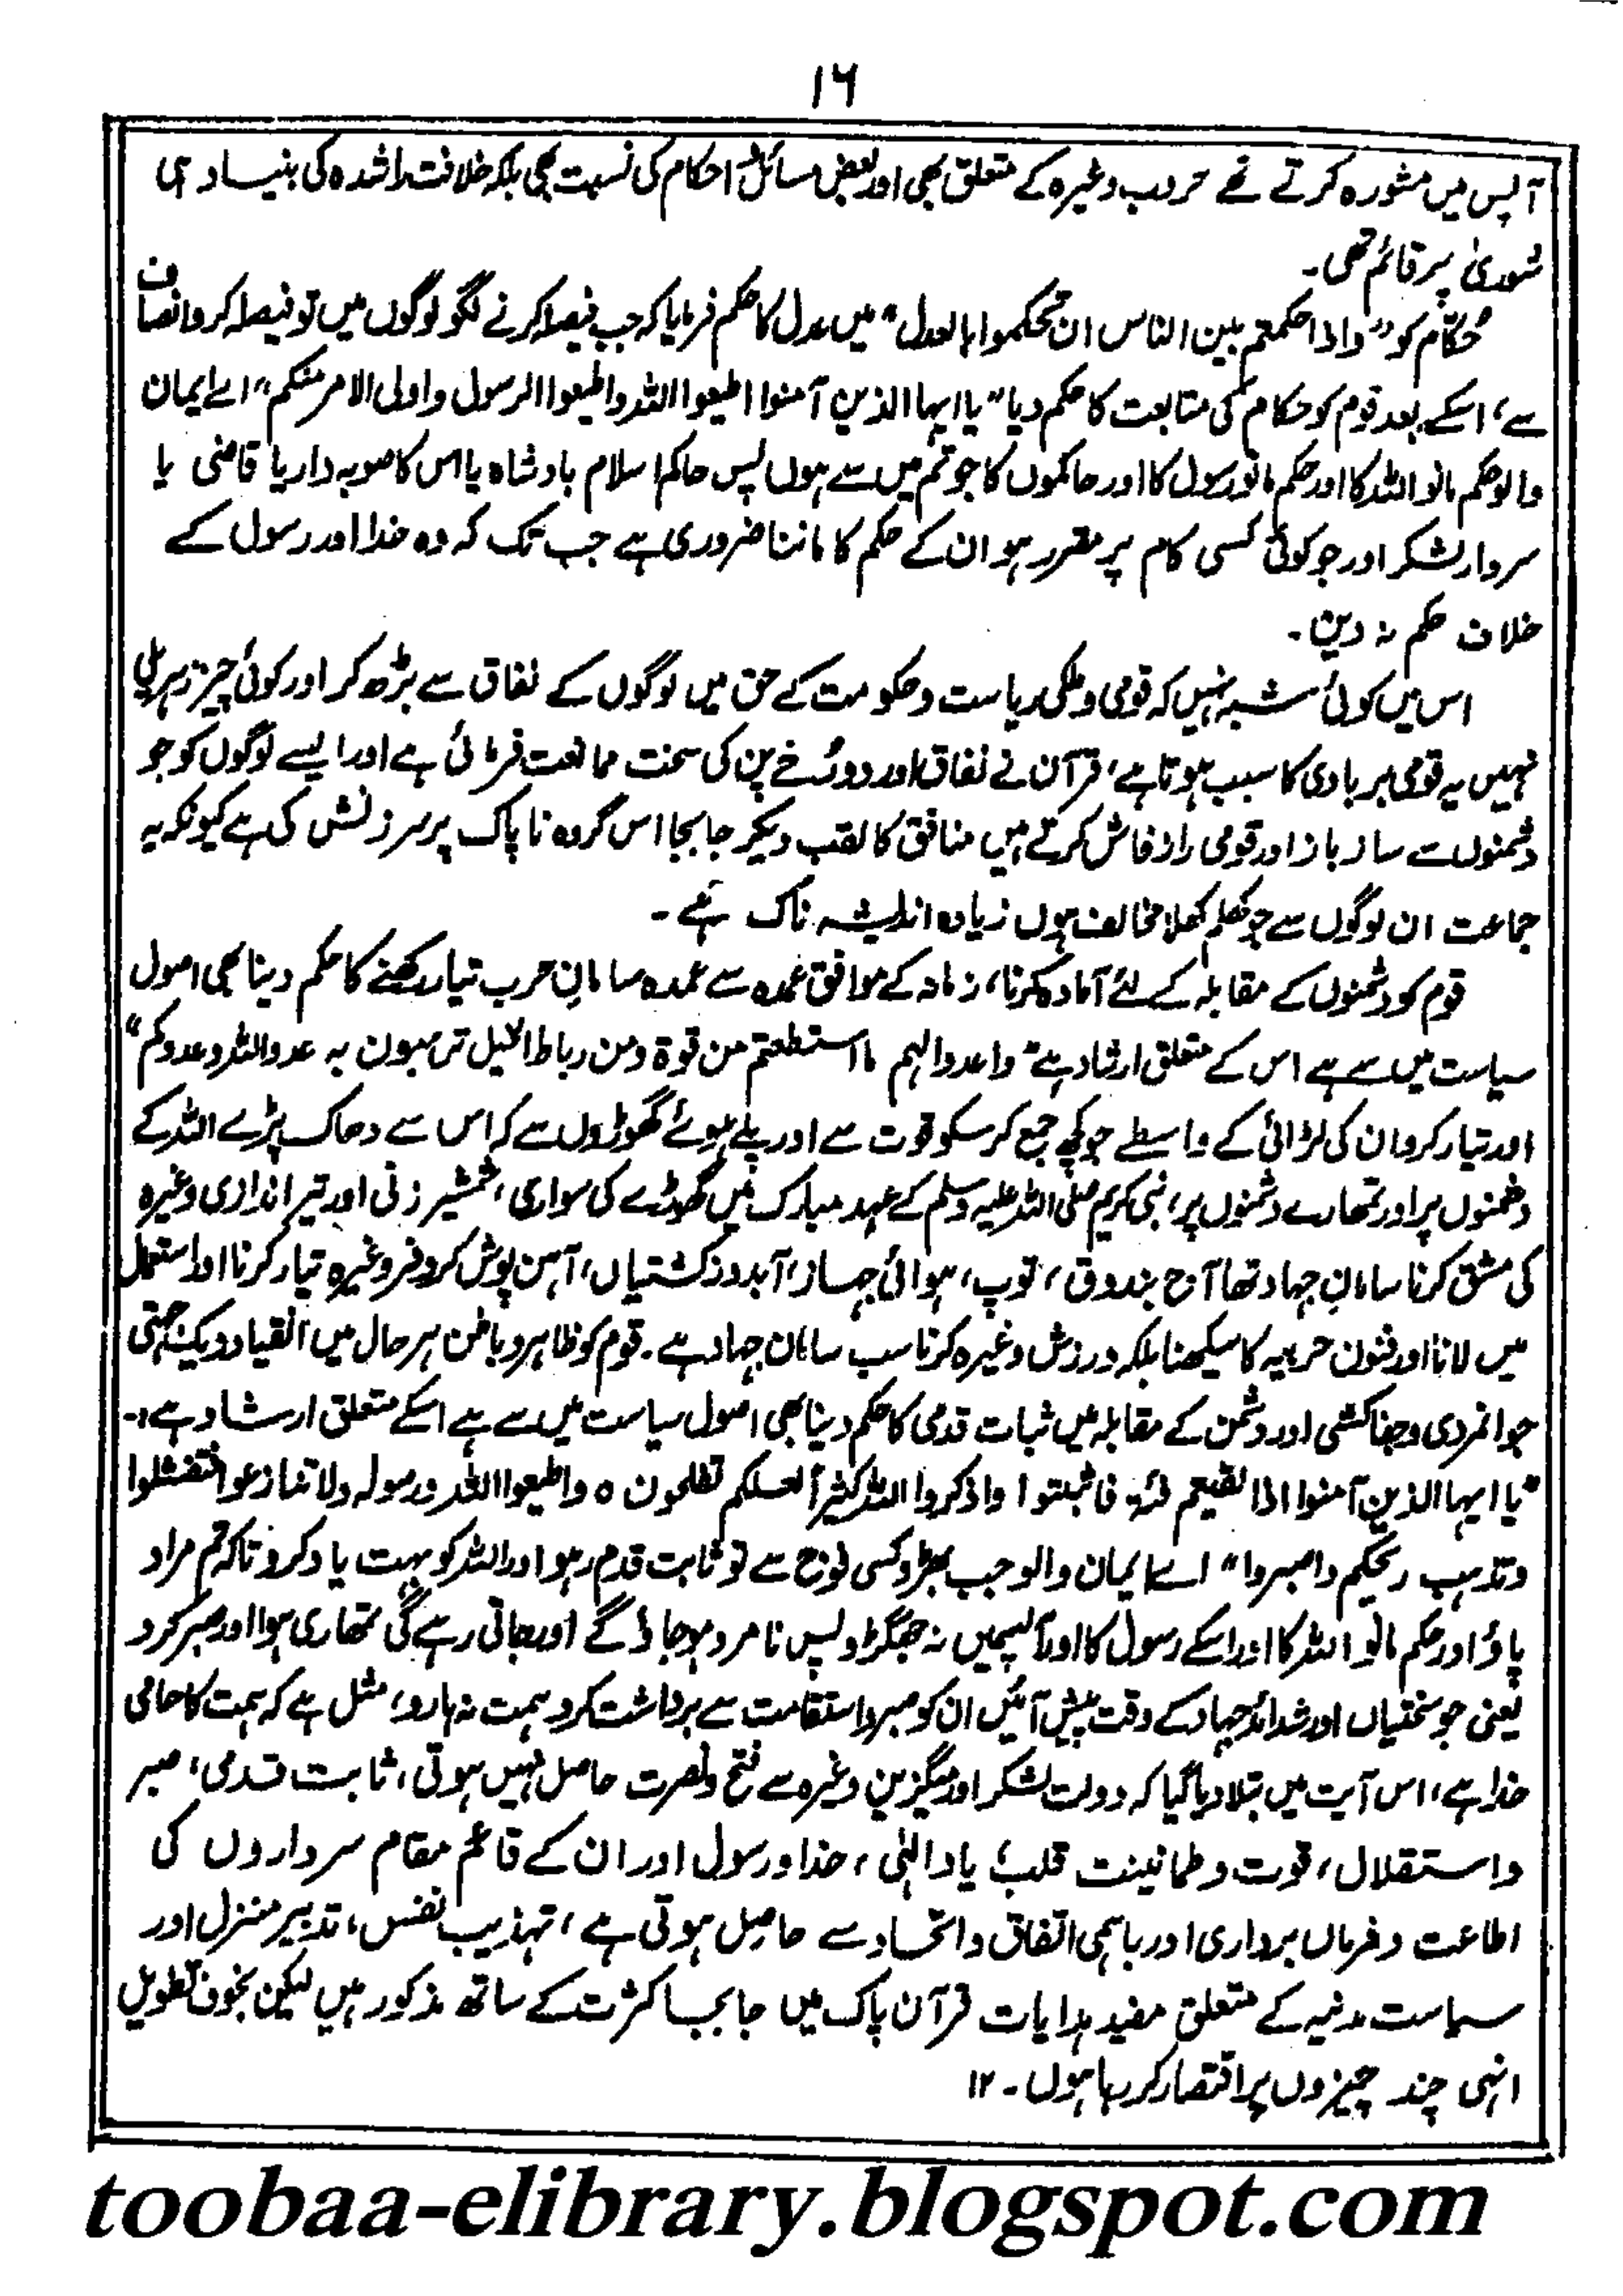 ۱۶
آپس میں مشورہ کرتے تھے حروب وغیرہ کے متعلق بھی اور بعض مسائل احکام کی نسبت بھی بلکہ خلافت راشدہ کی بنیاد ہی
شوریٰ پر قائم تھی۔
حکام کو "واذا حکمتم بین الناس ان تحکموا بالعدل" میں عدل کا حکم فرمایا کہ جب فیصلہ کرنے لگو لوگوں میں تو فیصلہ کرو انصاف
سے، اسکے بعد قوم کو حکام کی متابعت کا حکم دیا "یا ایہا الذین آمنوا اطیعوا اللہ واطیعوا الرسول واولی الامر منکم" اے ایمان
والو حکم مانو اللہ کا اور حکم مانو رسول کا اور حاکموں کا جو تم میں سے ہوں پس حاکم اسلام بادشاہ یا اس کا صوبہ دار یا قاضی یا
سردار لشکر اور جو کوئی کسی کام پر مقرر ہو ان کے حکم کا ماننا ضروری ہے جب تک کہ وہ خدا اور رسول کے
خلاف حکم نہ دین۔
اس میں کوئی شبہ نہیں کہ قومی و ملکی ریاست و حکومت کے حق میں لوگوں کے نفاق سے بڑھ کر اور کوئی چیز زہریلی
نہیں یہ قومی بربادی کا سبب ہوتا ہے، قرآن نے نفاق اور دورُخے پن کی سخت ممانعت فرمائی ہے اور ایسے لوگوں کو جو
دشمنوں سے ساز باز اور قومی راز فاش کرتے ہیں منافق کا لقب دیکر جا بجا اس گروہ ناپاک پر سرزنش کی ہے کیونکہ یہ
جماعت ان لوگوں سے جو کھلم کھلا مخالف ہوں زیادہ اندیشہ ناک ہے۔
قوم کو دشمنوں کے مقابلہ کے لئے آمادہ کرنا، زمانہ کے موافق عمدہ سے عمدہ سامانِ حرب تیار رکھنے کا حکم دینا بھی اصول
سیاست میں سے ہے اس کے متعلق ارشاد ہے "واعدوا لہم ما استطعتم من قوۃ ومن رباط الخیل ترہبون بہ عدو اللہ وعدوکم"
اور تیار کرو ان کی لڑائی کے واسطے جو کچھ جمع کر سکو قوت سے اور پلے ہوئے گھوڑوں سے کہ اس سے دھاک پڑے اللہ کے
دشمنوں پر اور تمھارے دشمنوں پر، نبی کریم صلی اللہ علیہ وسلم کے عہد مبارک میں گھوڑے کی سواری، شمشیر زنی اور تیر اندازی وغیرہ
کی مشق کرنا سامانِ جہاد تھا آج بندوق، توپ، ہوائی جہاز، آبدوز کشتیاں، آہن پوش کروفر وغیرہ تیار کرنا اور استعمال
میں لانا اور فنون حربیہ کا سیکھنا بلکہ ورزش وغیرہ کرنا سب سامان جہاد ہے۔ قوم کو ظاہر و باطن ہر حال میں انقیاد و یک جہتی
جوانمردی و جفاکشی اور دشمن کے مقابلہ میں ثبات قدمی کا حکم دینا بھی اصول سیاست میں سے ہے اسکے متعلق ارشاد ہے:۔
"یا ایہا الذین آمنوا اذا لقیتم فئۃ فاثبتوا واذکروا اللہ کثیراً لعلکم تفلحون ہ واطیعوا اللہ ورسولہ ولا تنازعوا فتفشلوا
وتذہب ریحکم واصبروا" اے ایمان والو جب بھڑو کسی فوج سے تو ثابت قدم رہو اور اللہ کو بہت یاد کرو تاکہ تم مراد
پاؤ اور حکم مانو اللہ کا اور اسکے رسول کا اور آپسمیں نہ جھگڑو پس نامرد ہو جاؤ گے اور جاتی رہے گی تمھاری ہوا اور صبر کرو
یعنی جو سختیاں اور شدائد جہاد کے وقت پیش آئیں ان کو صبر و استقامت سے برداشت کرو ہمت نہ ہارو، مثل ہے کہ ہمت کا حامی
خدا ہے، اس آیت میں بتلا دیا گیا کہ دولت لشکر اور میگزین وغیرہ سے فتح و نصرت حاصل نہیں ہوتی، ثابت قدمی، صبر
واستقلال، قوت و طمانینت قلب، یاد الٰہی، خدا و رسول اور ان کے قائم مقام سرداروں کی
اطاعت و فرماں برداری اور باہمی اتفاق و اتحاد سے حاصل ہوتی ہے، تہذیب نفس، تدبیر منزل اور
سیاست مدنیہ کے متعلق مفید ہدایات قرآن پاک میں جا بجا کثرت کے ساتھ مذکور ہیں لیکن بخوف تطویل
انہی چند چیزوں پر اقتصار کر رہا ہوں۔ ۱۲
toobaa-elibrary.blogspot.com